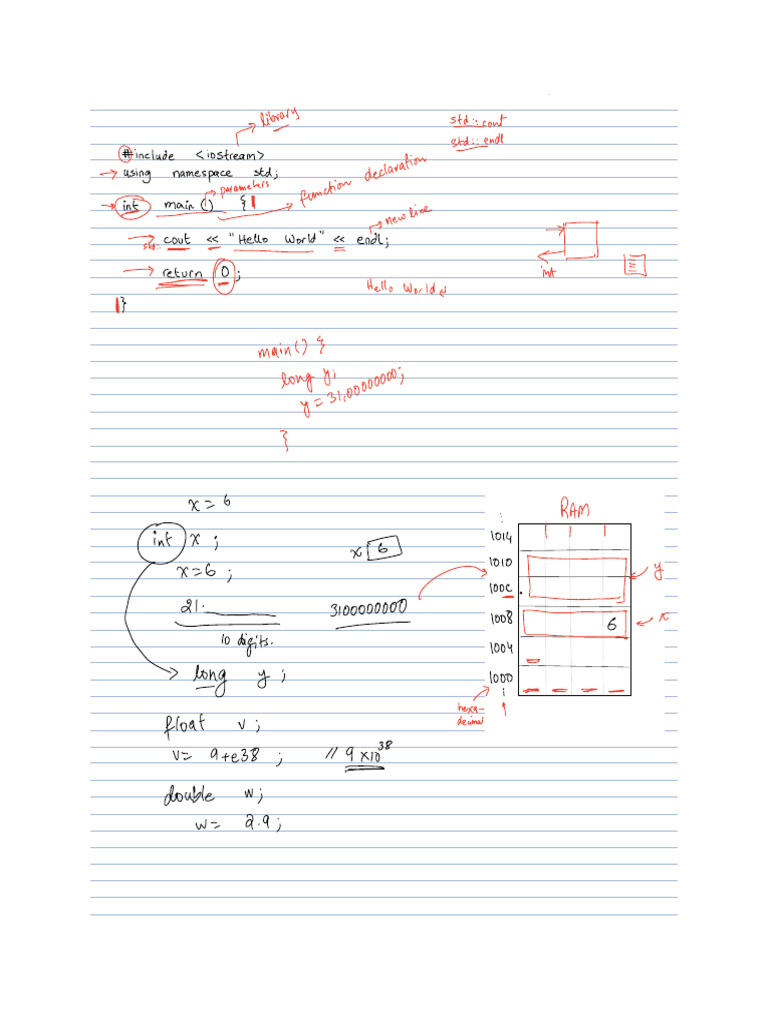 library
std::cout
#include <iostream>
std::endl
using namespace std;
parameters
function declaration
int main () {
new line
std:: cout << "Hello World" << endl;
int
return 0;
Hello World
}
main() {
long y;
y = 31,00000000;
}
x = 6
RAM
int x;
1014
x 6
x=6;
1010
y
100C
21.
3100000000
1008
6
x
10 digits.
1004
long y;
1000
hexa-
decimal
float v;
v= 9+e38; // 9 x10^38
double w;
w= 2.9;